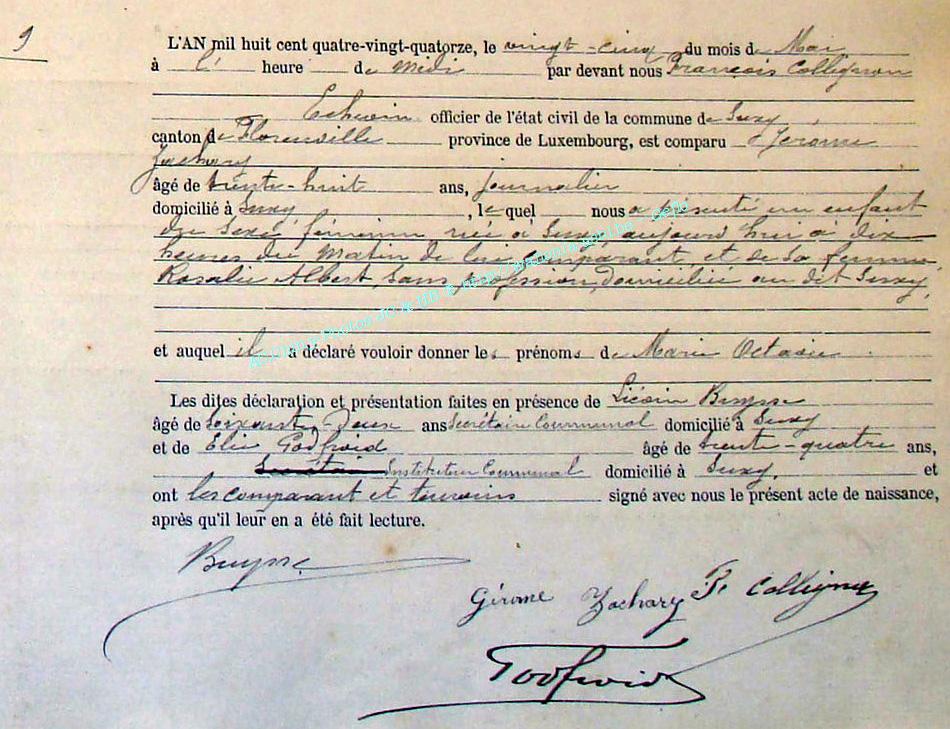 9
L'AN mil huit cent quatre-vingt-quatorze, le vingt-cinq du mois de Mai
à l' heure de Midi par devant nous François Collignon
Echevin officier de l'état civil de la commune de Suxy
canton de Florenville province de Luxembourg, est comparu Jérôme
Zachary
âgé de trente-huit ans, journalier
domicilié à Suxy, lequel nous a présenté un enfant
du sexe féminin née à Suxy aujourd'hui à dix
heures du matin de lui comparant et de sa femme
Rosalie Albert, sans profession, domiciliée au dit Suxy,
et auquel il a déclaré vouloir donner les prénoms de Marie Octavie
Les dites déclaration et présentation faites en présence de Buysse
âgé de soixante Deux ans Secrétaire Communal domicilié à Suxy
et de Elie Godfroid âgé de trente-quatre ans,
Secrétaire Instituteur Communal domicilié à Suxy, et
ont les comparant et témoins signé avec nous le présent acte de naissance,
après qu'il leur en a été fait lecture.
Buysse
Gérome Zachary F. Collignon
Godfroid